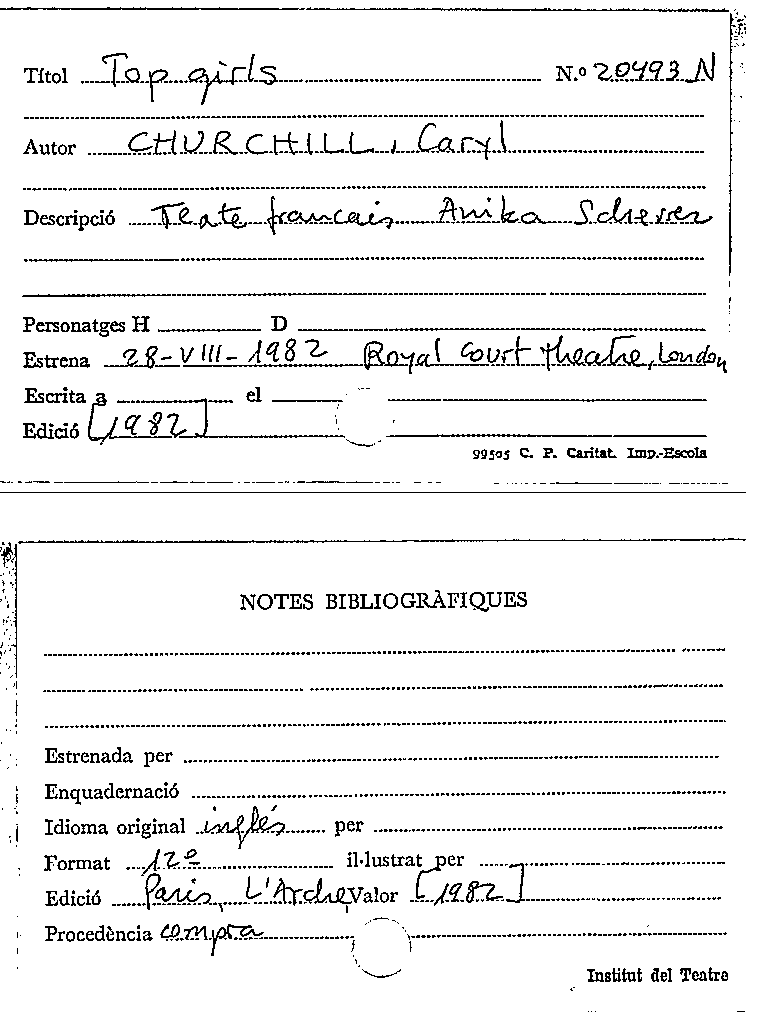 Títol Top girls N.º 20493 N
Autor CHURCHILL, Caryl
Descripció Teate francais Anika Scherrer
Personatges H D
Estrena 28-VIII-1982 Royal Court Theatre, London
Escrita a el
Edició [1982]
99505 C. P. Caritat. Imp.-Escola
NOTES BIBLIOGRÀFIQUES
Estrenada per
Enquadernació
Idioma original inglés per
Format 12º il·lustrat per
Edició Paris, L'Arche, Valor [1982]
Procedència compra
Institut del Teatre